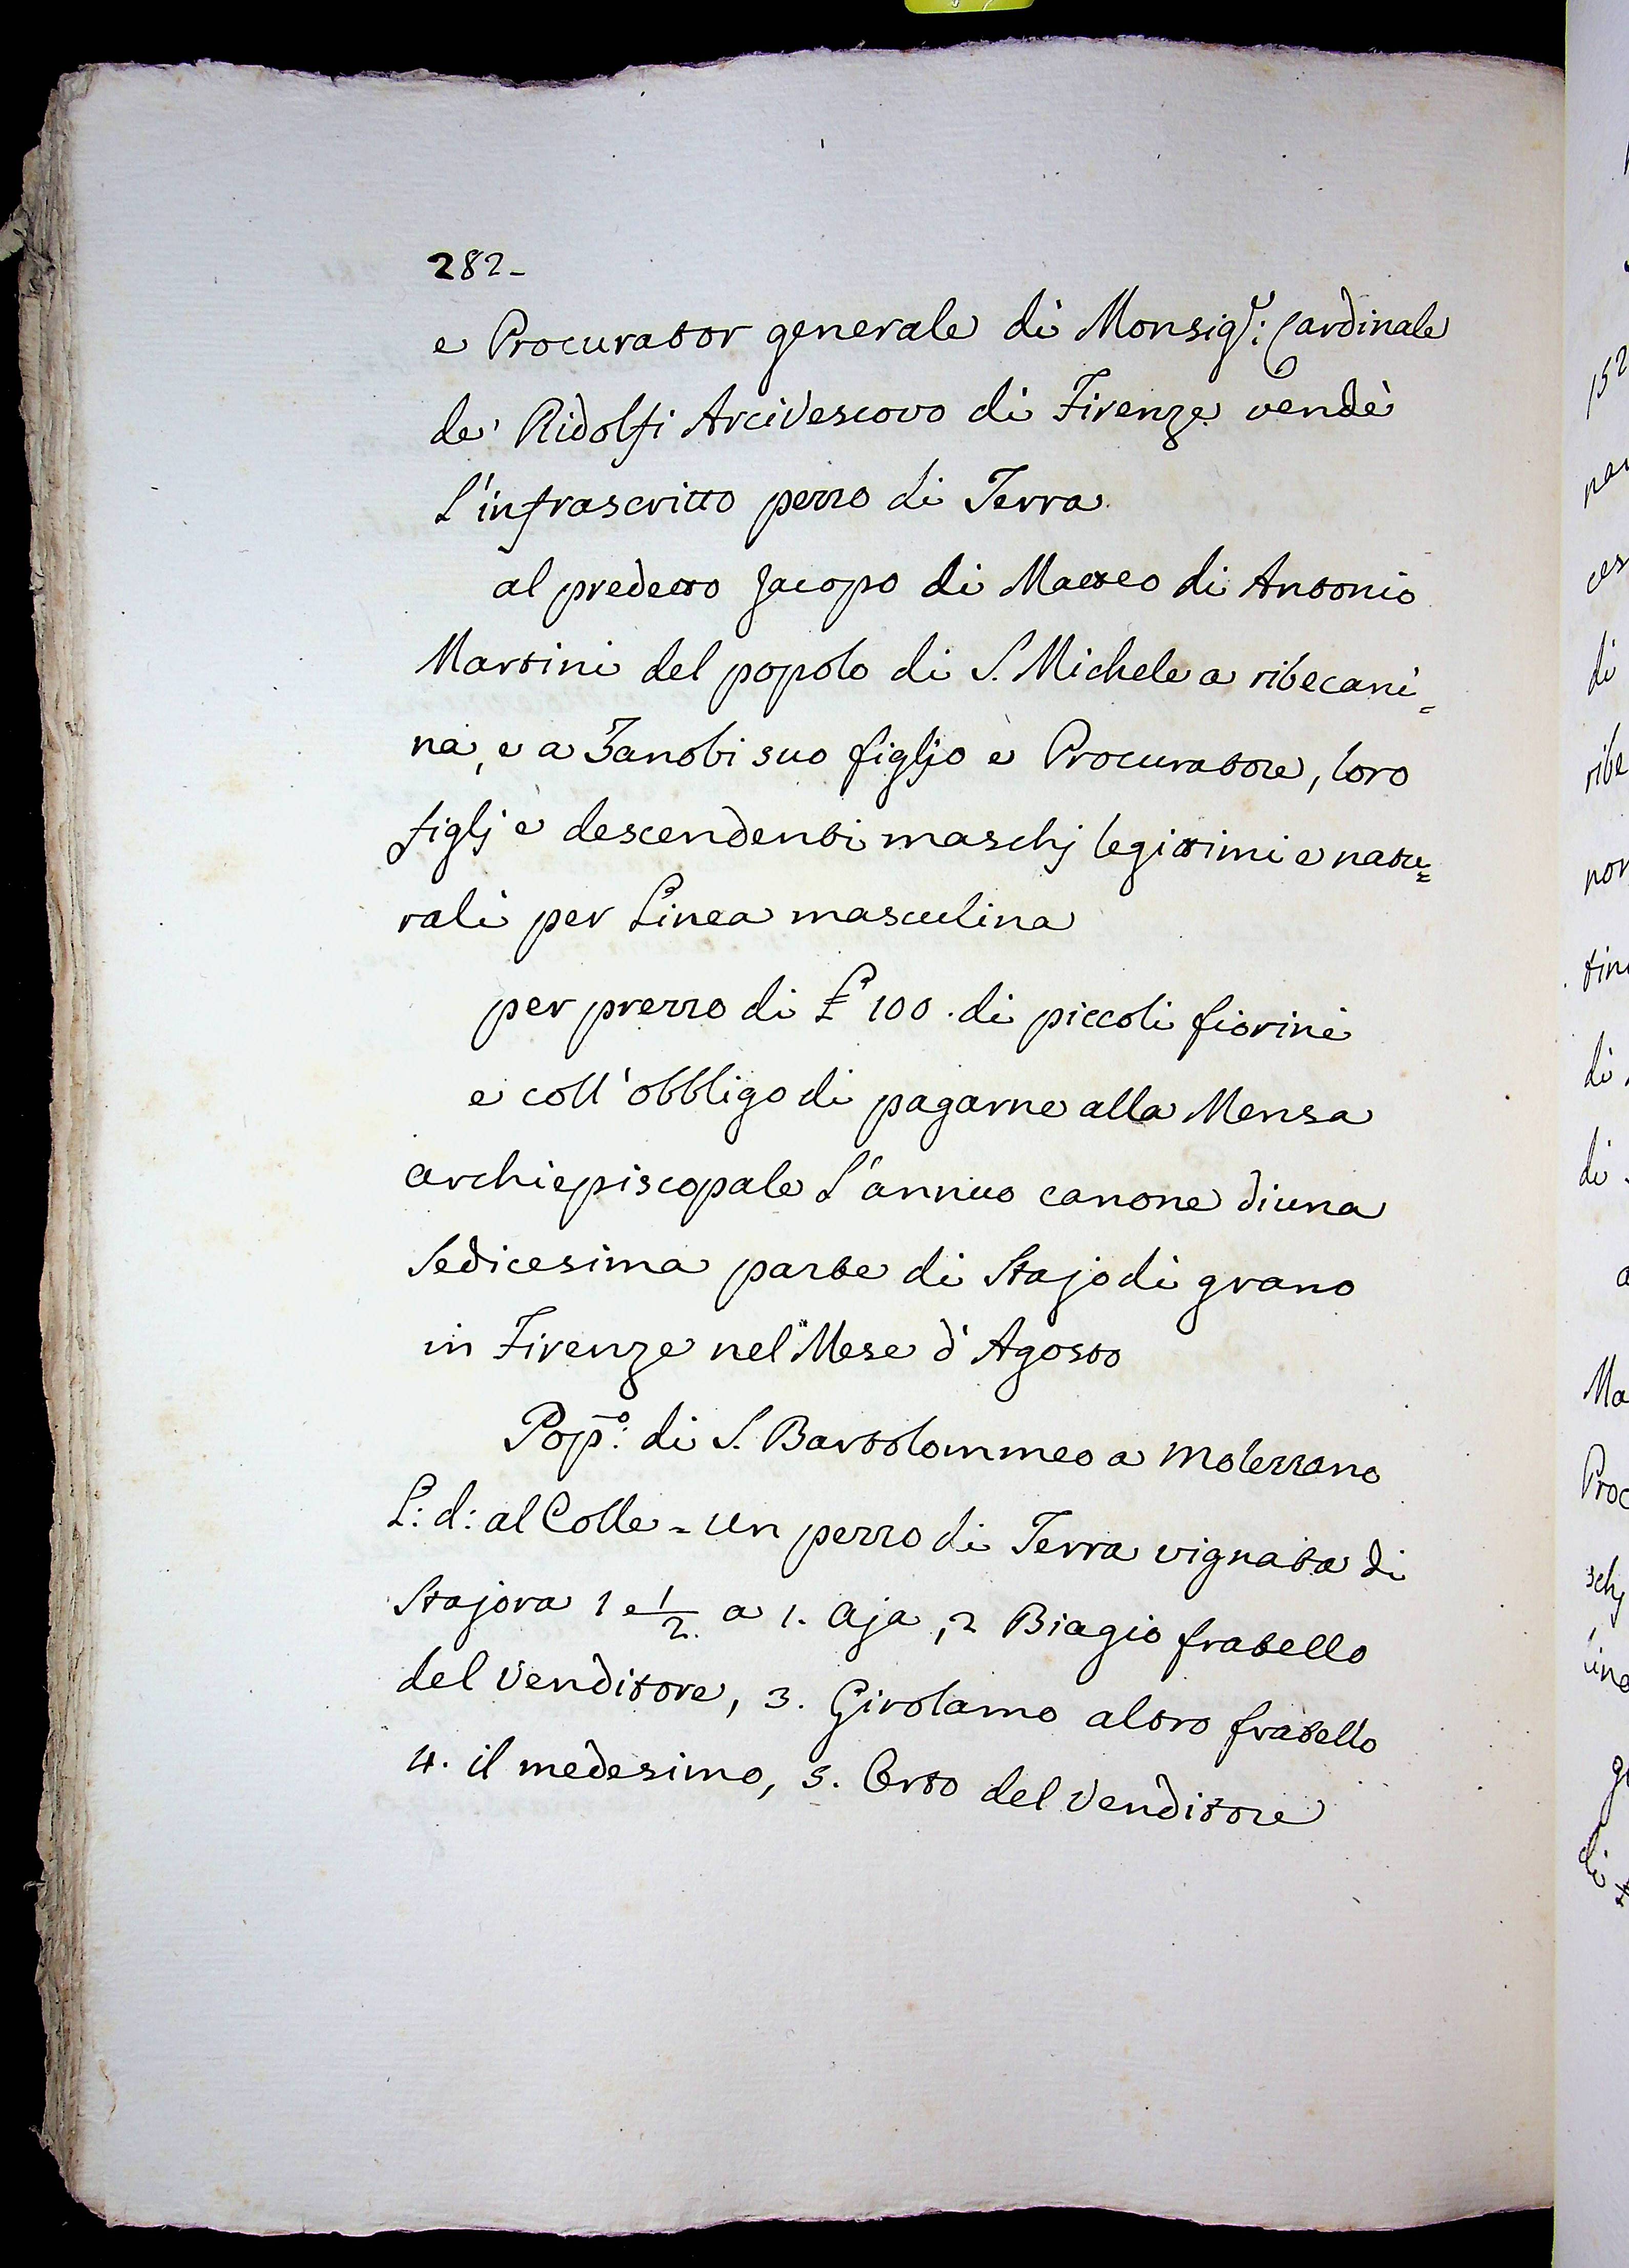 282-
e Procurator generale di Monsig.r: Cardinale
de' Ridolfi Arcivescovo di Firenze vendè
l'infrascritto pezzo di Terra
al predetto Jacopo di Matteo di Antonio
Martini del popolo di S. Michele a ribecani=
na, e a Zanobi suo figljo e Procuratore, loro
figlj e descendenti maschj legittimi e natu=
rali per Linea masculina
per prezzo di £ 100. di piccoli fiorini
e coll'obbligo di pagarne alla Mensa
archiepiscopale l'annuo canone di una
Sedicesima parte di Stajo di grano
in Firenze nel Mese d'Agosto
Pop.o: di S. Bartolommeo a Molezzano
L: d: al Colle = Un pezzo di Terra vignata di
Stajora 1 e 1/2. a 1. Aja, 2 Biagio fratello
del Venditore, 3. Girolamo altro fratello
4. il medesimo, 5. Orto del Venditore